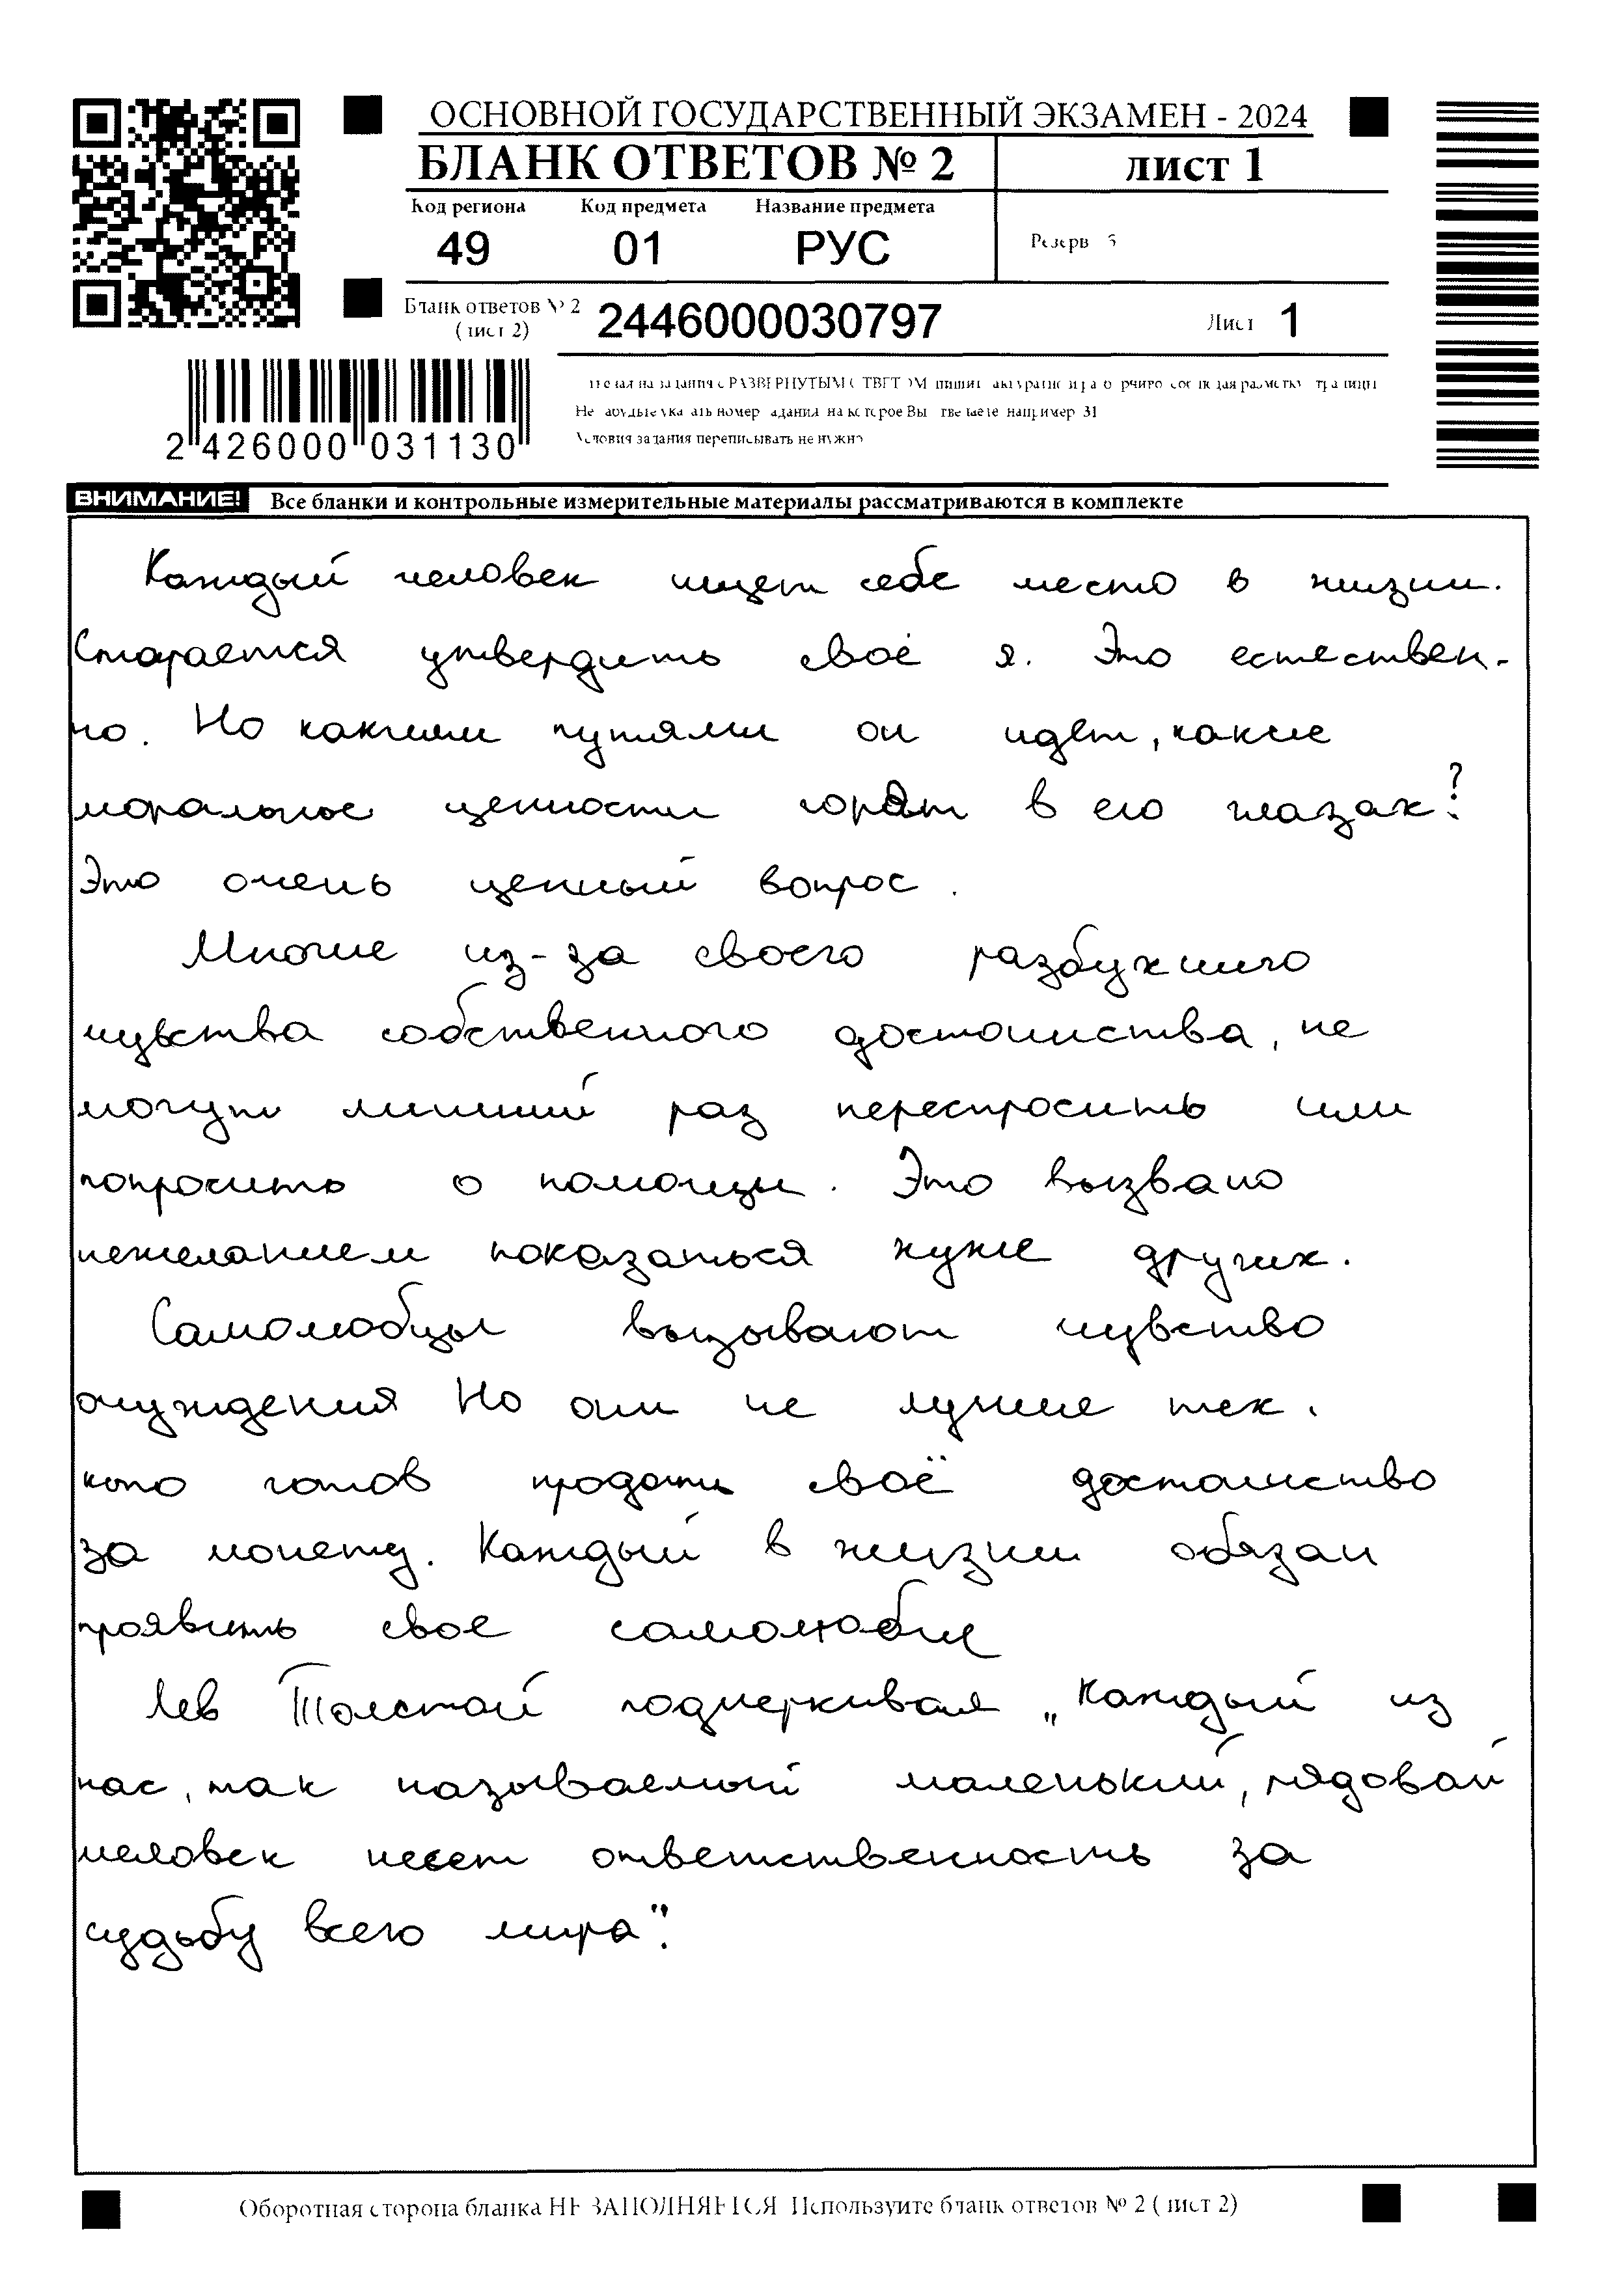 ОСНОВНОЙ ГОСУДАРСТВЕННЫЙ ЭКЗАМЕН - 2024
БЛАНК ОТВЕТОВ № 2 лист 1
Код региона Код предмета Название предмета
49 01 РУС Резерв 5
Бланк ответов № 2 (лист 2) 2446000030797 Лист 1
2 426000 031130
Условия задания переписывать не нужно
ВНИМАНИЕ! Все бланки и контрольные измерительные материалы рассматриваются в комплекте
Каждый человек ищет себе место в жизни.
Старается утвердить своё я. Это естествен-
но. Но какими путями он идет, какие
моральные ценности горят в его глазах?
Это очень ценный вопрос.
Многие из-за своего разбухшего
чувства собственного достоинства, не
могут лишний раз переспросить или
попросить о помощи. Это вызвано
нежеланием показаться хуже других.
Самолюбцы вызывают чувство
очуждения Но они не лучше тех.
кто готов продать своё достоинство
за монету. Каждый в жизни обязан
проявить свое самолюбие
Лев Толстой подчеркивал „каждый из
нас, так называемый маленький, рядовой
человек несет ответственность за
судьбу всего мира".
Оборотная сторона бланка НЕ ЗАПОЛНЯЕТСЯ Используйте бланк ответов № 2 (лист 2)